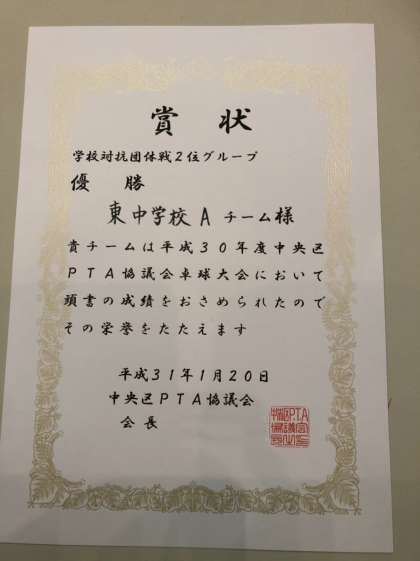 賞状
学校対抗団体戦2位グループ
優勝
東中学校Aチーム様
貴チームは平成30年度中央区
PTA協議会卓球大会において
頭書の成績をおさめられたので
その栄誉をたたえます
平成31年1月20日
中央区PTA協議会
会長